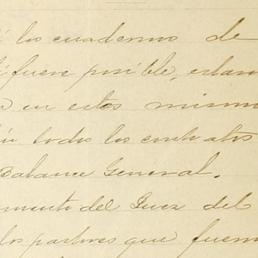 los cuadernos de
fuere posible, estan
en estos mismo
todos los contratos
Balance General.
mento del Juez del
los pastores que fueron